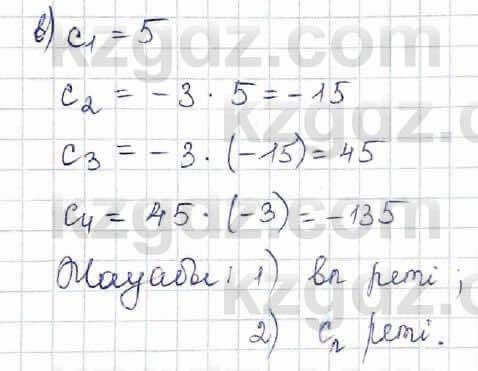 в) c₁ = 5
c₂ = -3 · 5 = -15
c₃ = -3 · (-15) = 45
c₄ = 45 · (-3) = -135
Жауабы: 1) bn реті;
2) cn реті.
kzgdz.com